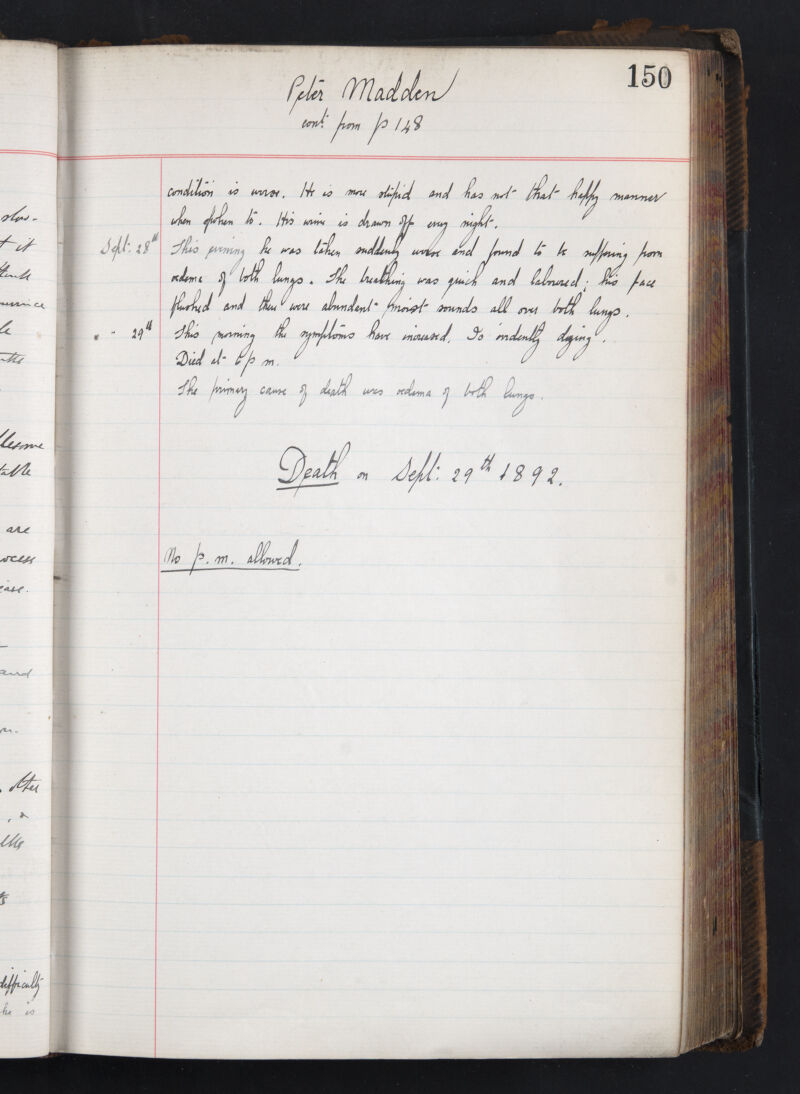 150
Peter Madden
cont. from p 148
condition is worse. He is more stupid and has not that happy manner
when spoken to. His urine is drawn off every night.
Sept: 28th This evening he was taken suddenly worse and found to be suffering from
œdema of both lungs. The breathing was quick and laboured; his face
flushed and there were abundant moist sounds all over both lungs.
" " 29th This morning the symptoms have increased. Is evidently dying.
Died at 6 p m.
The primary cause of death was œdema of both lungs.
Death on Sept: 29th 1892.
No p. m. allowed.
slow-
t it
think
le
lesome
table
are
ocess
ease.
and
other
difficulty
he is